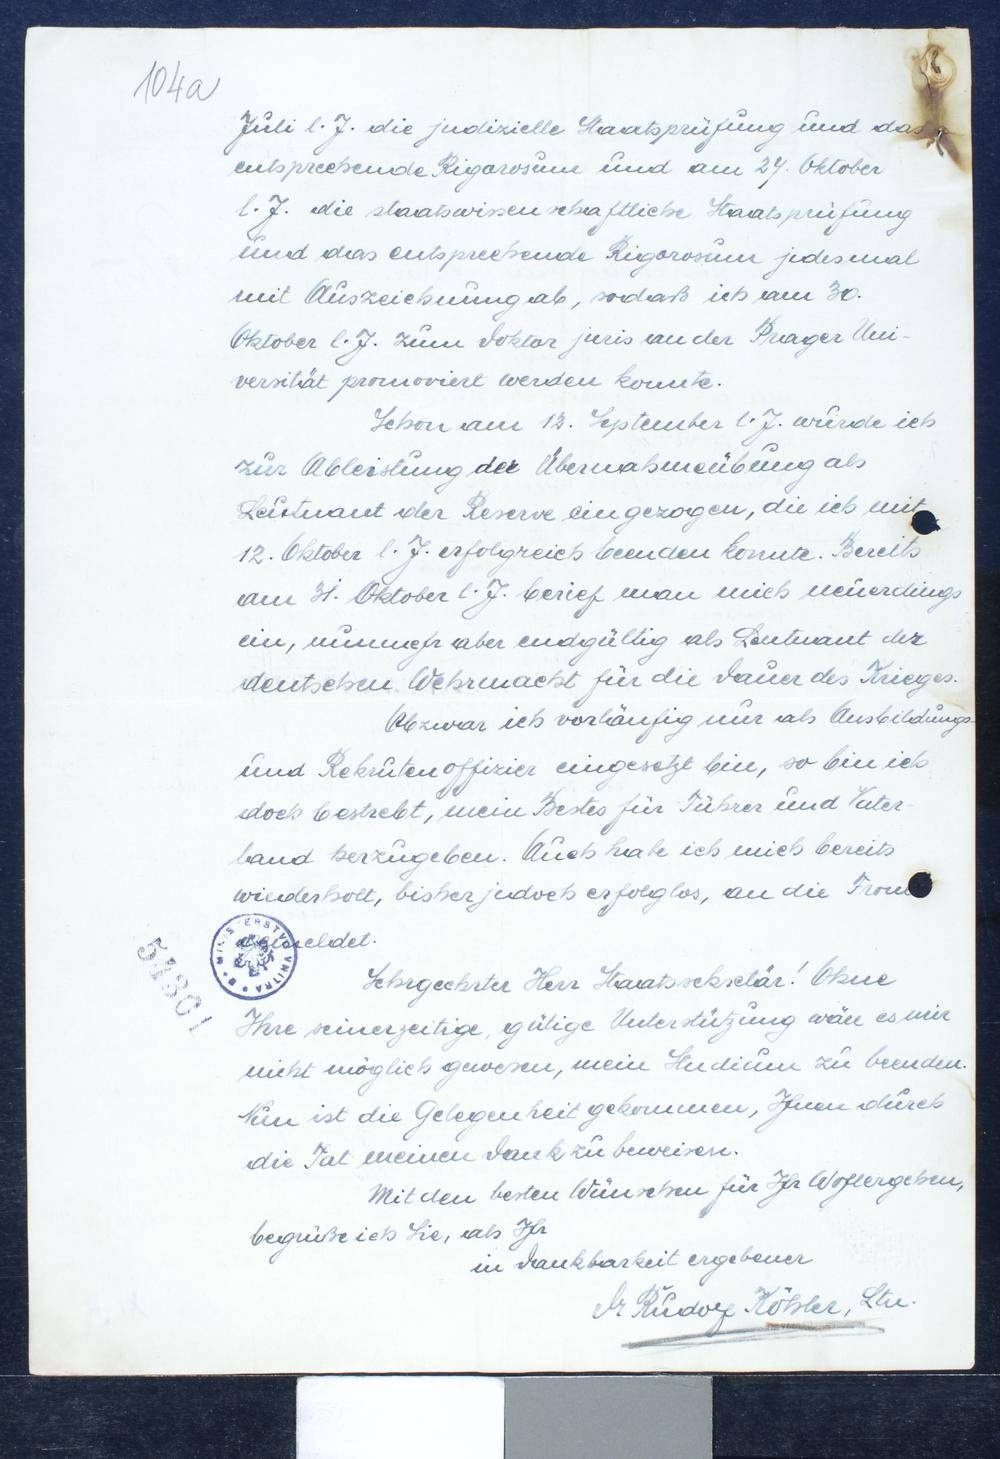 104a
Juli l. J. die judizielle Staatsprüfung und das
entsprechende Rigorosum und am 24. Oktober
l. J. die staatswissenschaftliche Staatsprüfung
und das entsprechende Rigorosum jedesmal
mit Auszeichnung ab, sodaß ich am 30.
Oktober l. J. zum Doktor juris an der Prager Uni-
versität promoviert werden konnte.
Schon am 12. September l. J. wurde ich
zur Ableistung der Übernahmeübung als
Leutnant der Reserve eingezogen, die ich mit
12. Oktober l. J. erfolgreich beenden konnte. Bereits
am 31. Oktober l. J. berief man mich neuerdings
ein, nunmehr aber endgültig als Leutnant der
deutschen Wehrmacht für die Dauer des Krieges.
Obzwar ich vorläufig nur als Ausbildungs-
und Rekrutenoffizier eingesetzt bin, so bin ich
doch bestrebt, mein Bestes für Führer und Vater-
land herzugeben. Auch habe ich mich bereits
wiederholt, bisher jedoch erfolglos, an die Front
gemeldet.
MINISTERSTVO VNITRA
54301
Sehrgeehrter Herr Staatssekretär! Ohne
Ihre seinerzeitige, gütige Unterstützung wäre es mir
nicht möglich gewesen, mein Studium zu beenden.
Nun ist die Gelegenheit gekommen, Ihnen durch
die Tat meinen Dank zu beweisen.
Mit den besten Wünschen für Ihr Wohlergehen,
begrüße ich Sie, als Ihr
in Dankbarkeit ergebener
Dr Rudolf Köhler, Ltn.